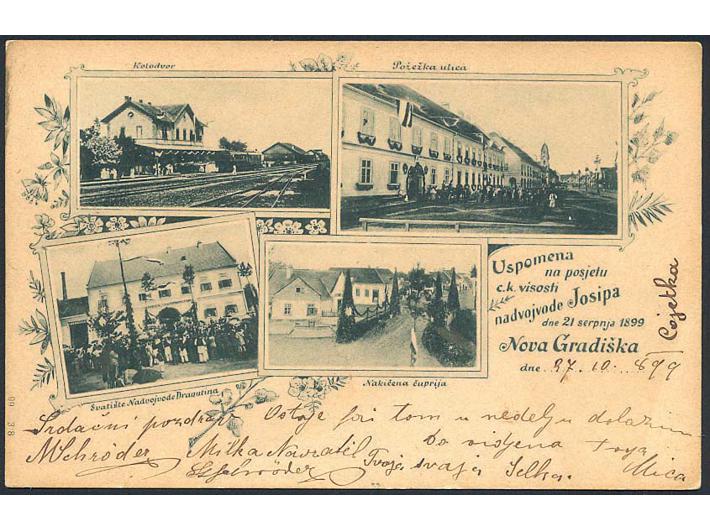 Kolodvor
Požežka ulica
Svatište Nadvojvode Dragutina
Nakićena ćuprija
Uspomena
na posjetu
c.k. visosti
nadvojvode Josipa
dne 21 serpnja 1899
Nova Gradiška
dne 27. 10. 899
Cvjetka
99 38
Srdačni pozdrav Ostaje pri tom u nedelju dolazim
MSchröder Milka Navratil Do vidjena tvoja
Schröder Tvoja svaja Jelka. Mica